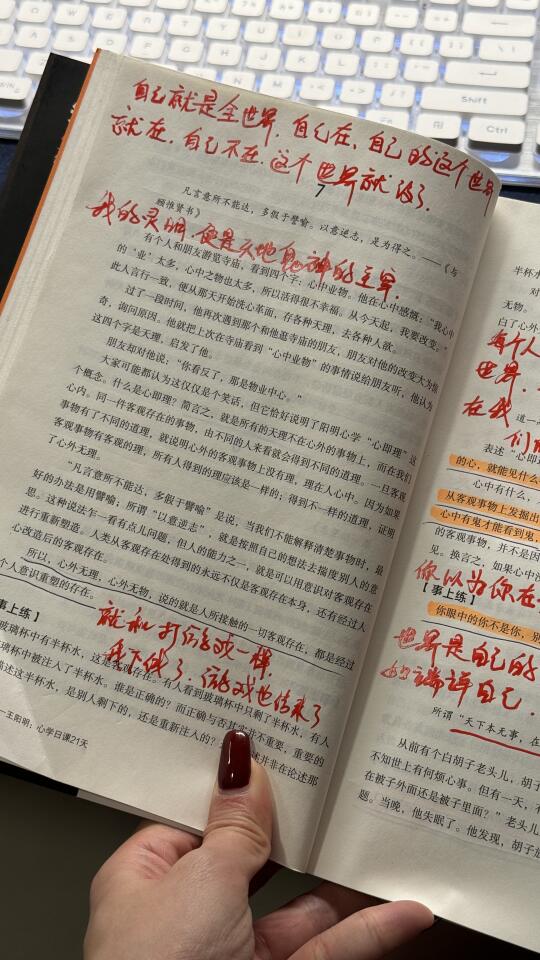 自己就是全世界,自己在,自己的这个世界
就在,自己不在,这个世界就没了.
7
凡言意所不能达,多假于譬喻。以意逆志,是为得之。——《与
顾惟贤书》
我的灵明,便是天地鬼神的主宰.
有个人和朋友游览寺庙,看到四个字:心中业物。他在心中感慨:“我心中
的‘业’太多,心中之物也太多,所以活得很不幸福。从今天起,我要改变。”
此人言行一致,便从那天开始洗心革面,存各种天理,去各种人欲。
过了一段时间,他再次遇到那个和他逛寺庙的朋友,朋友对他的改变大为惊
奇,询问原因。他就把上次在寺庙看到“心中业物”的事情说给朋友听,他认为
这四个字是天理,启发了他。
朋友却对他说:“你看反了,那是物业中心。”
大家可能都认为这仅仅是个笑话,但它恰好说明了阳明心学“心即理”这
个概念。什么是心即理?简言之,就是所有的天理不在心外的事物上,而在我们
心内。同一件客观存在的事物,由不同的人来看就会得到不同的道理。一旦客观
事物有了不同的道理,就说明心外的客观事物上没有理,理在人心中。因为如果
客观事物有客观的理,所有人得到的理应该是一样的;得到不一样的道理,证明
了心外无理。
“凡言意所不能达,多假于譬喻”是说,当我们不能解释清楚事物时,最
好的办法是用譬喻,所谓“以意逆志”,就是按照自己的想法去揣度别人的意
思。这种说法乍一看有点儿问题,但人的能力之一,就是可以用意识对客观存在
进行重新塑造。人类从客观存在处得到的永远不仅是客观存在本身,还有经过人
心改造后的客观存在。
所以,心外无理,心外无物,说的就是人所接触的一切客观存在,都是经过
个人意识重塑的存在。
事上练】
就和打游戏一样,
我下线了,游戏也结束了
玻璃杯中有半杯水,这是客观存在。有人看到玻璃杯中只剩了半杯水,有人
玻璃杯中被注入了半杯水。谁是正确的?而正确与否其实并不重要,重要的
描述这半杯水,是别人剩下的,还是重新注入的?
并非在论述那
—王阳明:心学日课21天
半杯水
对
无物。
白了心外
每个人
世界,
在我
们
道一
表述“心即
的心,就能见什么
心中有什么,
从客观事物上发掘出
心中有鬼才能看到鬼,
的客观事物,并不是因
见。换言之,如果心中没
你以为你在
【事上练】
你眼中的你不是你,别
世界是自己的
的端详自己.
所谓“天下本无事,在
从前有个白胡子老头儿,胡子
不知世上有何烦心事。但有一天,有
在被子外面还是被子里面?”老头儿
题。当晚,他失眠了。他发现,胡子放
Shift
Ctrl